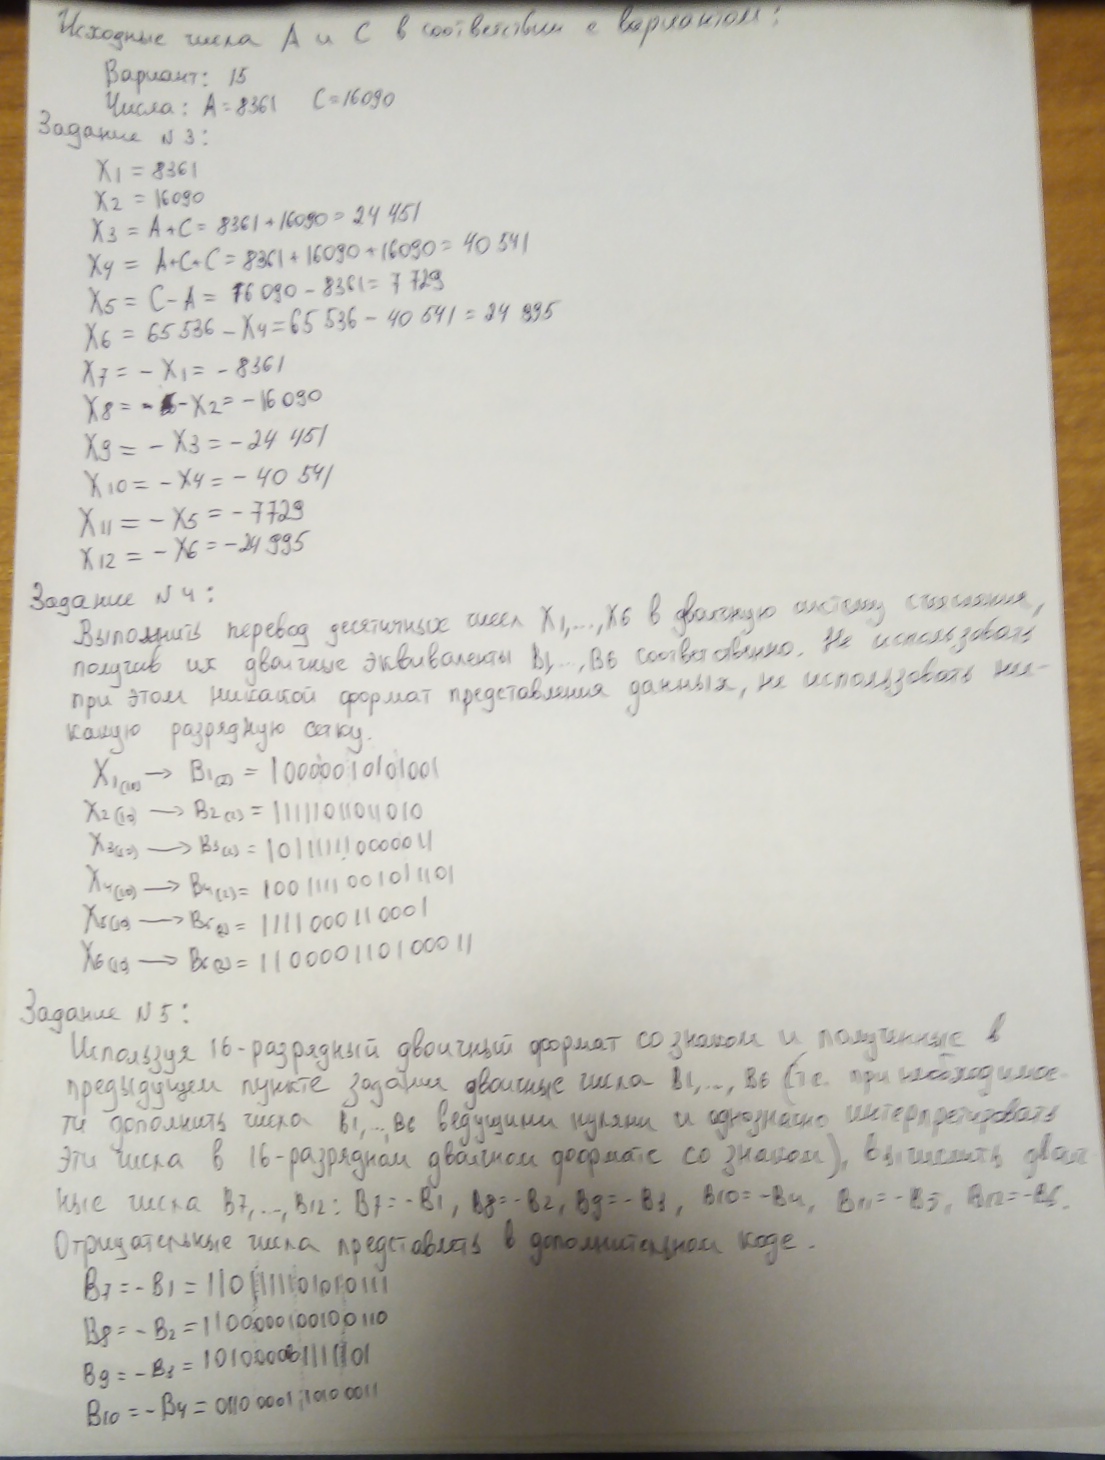 Исходные числа A и C в соответствии с вариантом:
Вариант: 15
Числа: A=8361 C=16090
Задание N3:
X1 = 8361
X2 = 16090
X3 = A+C= 8361+16090= 24 451
X4 = A+C+C= 8361+16090+16090= 40 541
X5 = C-A= 16 090-8361= 7 729
X6 = 65 536 - X4=65 536 - 40 541= 24 995
X7 = - X1 = - 8361
X8 = - X2= -16 090
X9 = - X3 = -24 451
X10 = -X4 = - 40 541
X11 = - X5 = -7729
X12 = - X6 = -24 995
Задание N4:
Выполнить перевод десятичных чисел X1,...,X6 в двоичную систему счисления,
получив их двоичные эквиваленты B1,...,B6 соответственно. Не использовать
при этом никакой формат представления данных, не использовать ни-
какую разрядную сетку.
X1(10) → B1(2) = 10000010101001
X2(10) → B2(2) = 11111011011010
X3(10) → B3(2) = 101111110000011
X4(10) → B4(2)= 1001111001011101
X5(10) → B5(2)= 1111000110001
X6(10) → B6(2)= 110000110100011
Задание N5:
Используя 16-разрядный двоичный формат со знаком и полученные в
предыдущем пункте задания двоичные числа B1,..., B6 (т.е. при необходимос-
ти дополнить числа B1,..,B6 ведущими нулями и однозначно интерпретировать
эти числа в 16-разрядном двоичном формате со знаком), вычислить двоич-
ные числа B7,...,B12: B7=-B1, B8=-B2, B9=-B3, B10=-B4, B11=-B5, B12=-B6.
Отрицательные числа представлять в дополнительном коде.
B7=-B1 = 1101111101010111
B8=-B2=1100000100100110
B9=-B3 = 1010000001111101
B10=-B4= 0110000110100011